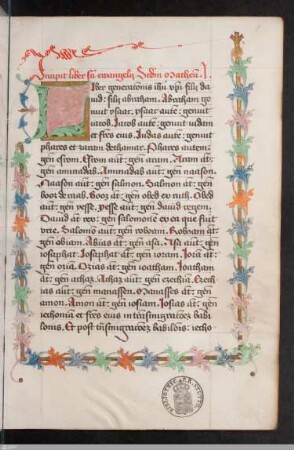 Incipit liber sci ewangelij Scdm Matheu. I.
Liber generationis ihu xpi filij da
uid: filij abraham. Abraham ge
nuit ysaac: ysaac aute: genuit
iacob. Iacob aute: genuit iudam
et fres eius. Iudas aute: genuit
phares et zaram dethamar. Phares autem:
gen esrom. Esrom aut: gen aram. Aram at:
gen aminadab. Aminadab aut: gen naason.
Naason aut: gen salmon. Salmon at: gen
booz de raab. Booz at: gen obeth ex ruth. Obeth
aut: gen yesse. Yesse aut: gen dauid regem.
Dauid at: rex: gen salomone ex ea que fuit
vrie. Salomo aut: gen roboam. Roboam at:
gen abiam. Abias at: gen asa. Asa aut: gen
iosephat. Iosephat at: gen ioram. Iora at:
gen oziam. Ozias at: gen ioatham. Ioatham
at: gen achaz. Achaz aut: gen ezechia. Ezech
ias aut: gen manassen. Manasses at: gen
amon. Amon at: gen iosiam. Iosias at: gen
iechonia et fres eius in tnsmigracoe babi
lonis. Et post tnsmigracoez babilois: iecho